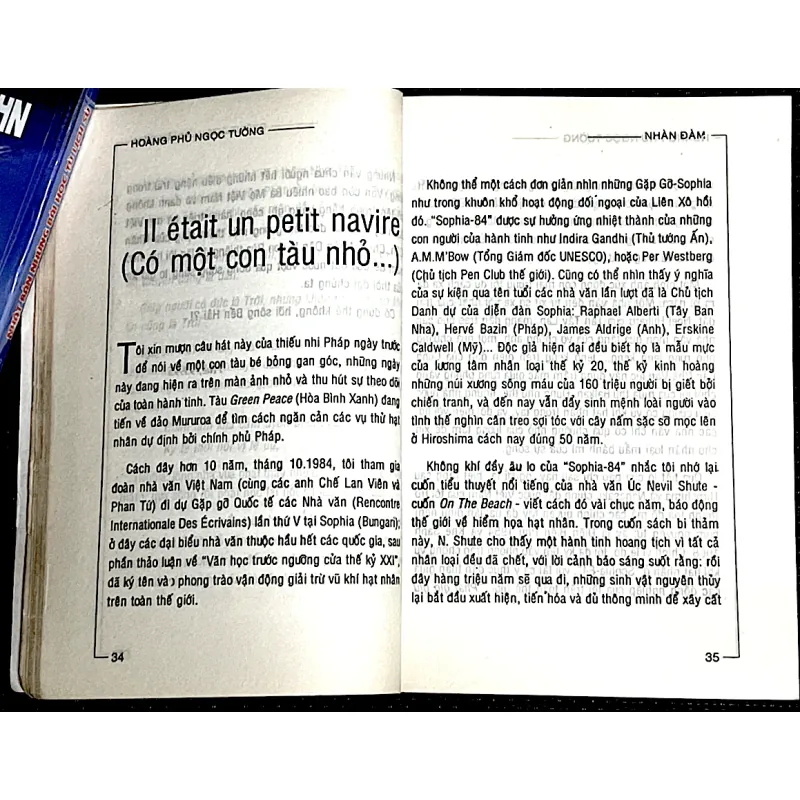 NH
NHẬT BỔN NHỮNG BÀI HỌC TỪ LỊCH SỬ
HOÀNG PHỦ NGỌC TƯỜNG
Il était un petit navire
(Có một con tàu nhỏ...)
Tôi xin mượn câu hát này của thiếu nhi Pháp ngày trước
để nói về một con tàu bé bỏng gan góc, những ngày
này đang hiện ra trên màn ảnh nhỏ và thu hút sự theo dõi
của toàn hành tinh. Tàu Green Peace (Hòa Bình Xanh) đang
tiến về đảo Mururoa để tìm cách ngăn cản các vụ thử hạt
nhân dự định bởi chính phủ Pháp.
Cách đây hơn 10 năm, tháng 10.1984, tôi tham gia
đoàn nhà văn Việt Nam (cùng các anh Chế Lan Viên và
Phan Tứ) đi dự Gặp gỡ Quốc tế các Nhà văn (Rencontre
Internationale Des Écrivains) lần thứ V tại Sophia (Bungari);
ở đây các đại biểu nhà văn thuộc hầu hết các quốc gia, sau
phần thảo luận về "Văn học trước ngưỡng cửa thế kỷ XXI",
đã ký tên và phong trào vận động giải trừ vũ khí hạt nhân
trên toàn thế giới.
34
NHÀN ĐÀM
Không thể một cách đơn giản nhìn những Gặp Gỡ-Sophia
như trong khuôn khổ hoạt động đối ngoại của Liên Xô hồi
đó. "Sophia-84" được sự hưởng ứng nhiệt thành của những
con người của hành tinh như Indira Gandhi (Thủ tướng Ấn),
A.M.M'Bow (Tổng Giám đốc UNESCO), hoặc Per Westberg
(Chủ tịch Pen Club thế giới). Cũng có thể nhìn thấy ý nghĩa
của sự kiện qua tên tuổi các nhà văn lần lượt đã là Chủ tịch
Danh dự của diễn đàn Sophia: Raphael Alberti (Tây Ban
Nha), Hervé Bazin (Pháp), James Aldrige (Anh), Erskine
Caldwell (Mỹ)... Độc giả hiện đại đều biết họ là mẫu mực
của lương tâm nhân loại thế kỷ 20, thế kỷ kinh hoàng
những núi xương sông máu của 160 triệu người bị giết bởi
chiến tranh, và đến nay vẫn đẩy sinh mệnh loài người vào
tình thế nghìn cân treo sợi tóc với cây nấm sặc sỡ mọc lên
ở Hiroshima cách nay đúng 50 năm.
Không khí đầy âu lo của "Sophia-84" nhắc tôi nhớ lại
cuốn tiểu thuyết nổi tiếng của nhà văn Úc Nevil Shute -
cuốn On The Beach - viết cách đó vài chục năm, báo động
thế giới về hiểm họa hạt nhân. Trong cuốn sách bi thảm
này, N. Shute cho thấy một hành tinh hoang tịch vì tất cả
nhân loại đều đã chết, với lời cảnh báo sáng suốt rằng: rồi
đây hàng triệu năm sẽ qua đi, những sinh vật nguyên thủy
lại bắt đầu xuất hiện, tiến hóa và đủ thông minh để xây cất
35